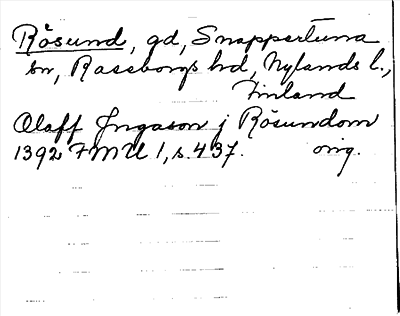 Rösund, gd, Snappertuna
sn, Raseborgs hd, Nylands l.,
Finland
Olaff Ingason j Rösundom
1392 FMU 1, s. 437. orig.